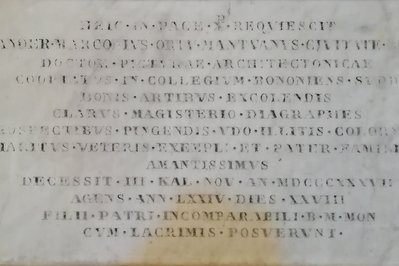 HEIC · IN · PACE · X · REQVIESCIT
ANDER · MARCOTIVS · ORTV · MANTVANVS · CIVITATE
DOCTOR · PICTVRAE · ARCHITECTONICAE
COOPTATVS · IN · COLLEGIVM · BONONIENS
BONIS · ARTIBVS · EXCOLENDIS
CLARVS · MAGISTERIO · DIAGRAPHES
ROSPECTIBVS · PINGENDIS · VDO · ILLITIS · COLORE
MARITVS · VETERIS · EXEMPLI · ET · PATER · FAMILI
AMANTISSIMVS
DECESSIT · III · KAL · NOV · AN · MDCCCXXXVII
AGENS · ANN · LXXIV · DIES · XXVIII
FILII · PATRI · INCOMPARABILI · B · M · MON
CVM · LACRIMIS · POSVERVNT ·